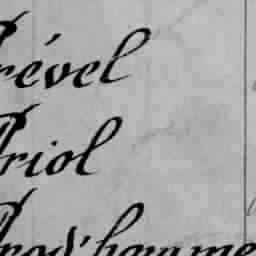 Prével
Priol
Prod'homme